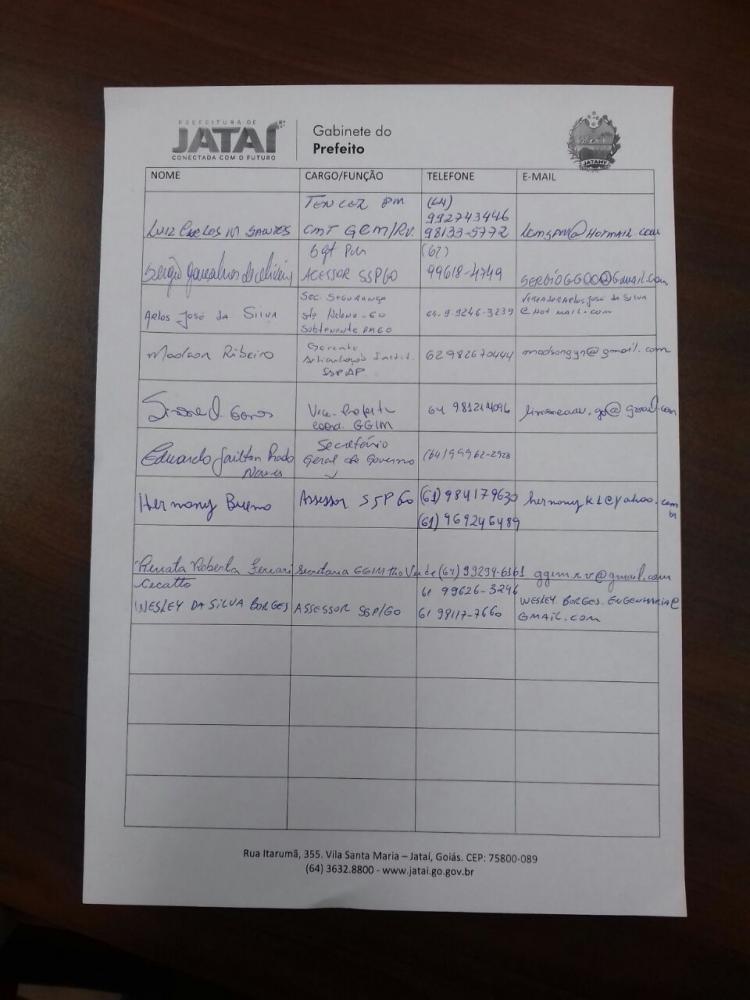 PREFEITURA DE
JATAÍ
CONECTADA COM O FUTURO
Gabinete do
Prefeito
JATAHY
NOME CARGO/FUNÇÃO TELEFONE E-MAIL
TEN CEL PM (64)
992743446
LUIZ CARLOS M SANTOS CMT GCM/RV. 98133-5772 lcmspm@HOTMAIL.com
Sgt PM (62)
Sergio Gonçalves de Oliveira ACESSOR SSPGO 99618-4749 SERGIOGGOO@Gmail.com
Sec. SEGURANÇA
Arlos José da Silva Sta Helena-GO 64.9.9246-3239 @Hotmail.com
Subtenente PMGO
Madson Ribeiro Gerente 62982670444 madsongyn@gmail.com
Articulação Instit.
SSPAP
Vice-Prefeita 64 981214096
coord. GGIM
Eduardo Jailton Prado Secretário
Geral de Governo (64)99962-2928
Hermony Bueno Assessor SSPGO (61)984179630 hermonykl@yahoo.com
br
(61)969246489
Renata Roberta Ferrari Secretaria GGIM Rio Verde (64)99294-6361 ggim.r.v@gmail.com
Cecatto
61 99626-3246
WESLEY DA SILVA BORGES ASSESSOR SSP/GO 61 98117-7660 WESLEY.BORGES.ENGENHARIA@
GMAIL.COM
Rua Itarumã, 355. Vila Santa Maria – Jataí, Goiás. CEP: 75800-089
(64) 3632.8800 - www.jatai.go.gov.br